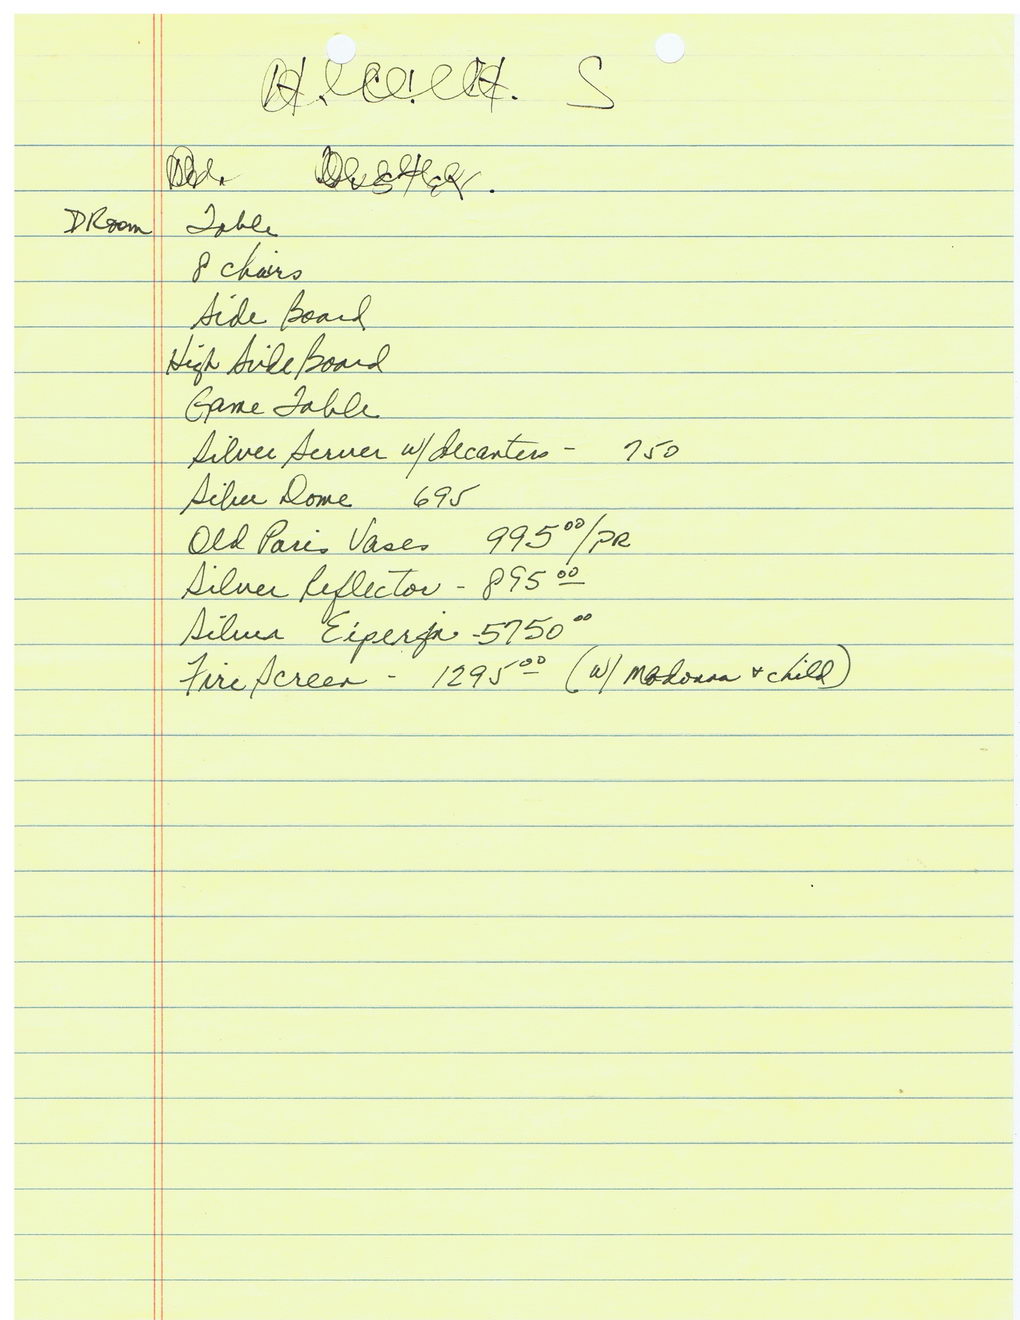 DRoom Table
8 chairs
Side Board
High Side Board
Game Table
Silver Server w/decanters - 750
Silver Dome 695
Old Paris Vases 995⁰⁰/PR
Silver Reflector - 895⁰⁰
Silver -5750⁰⁰
Fire Screen - 1295⁰⁰ (w/ Madonna + child)